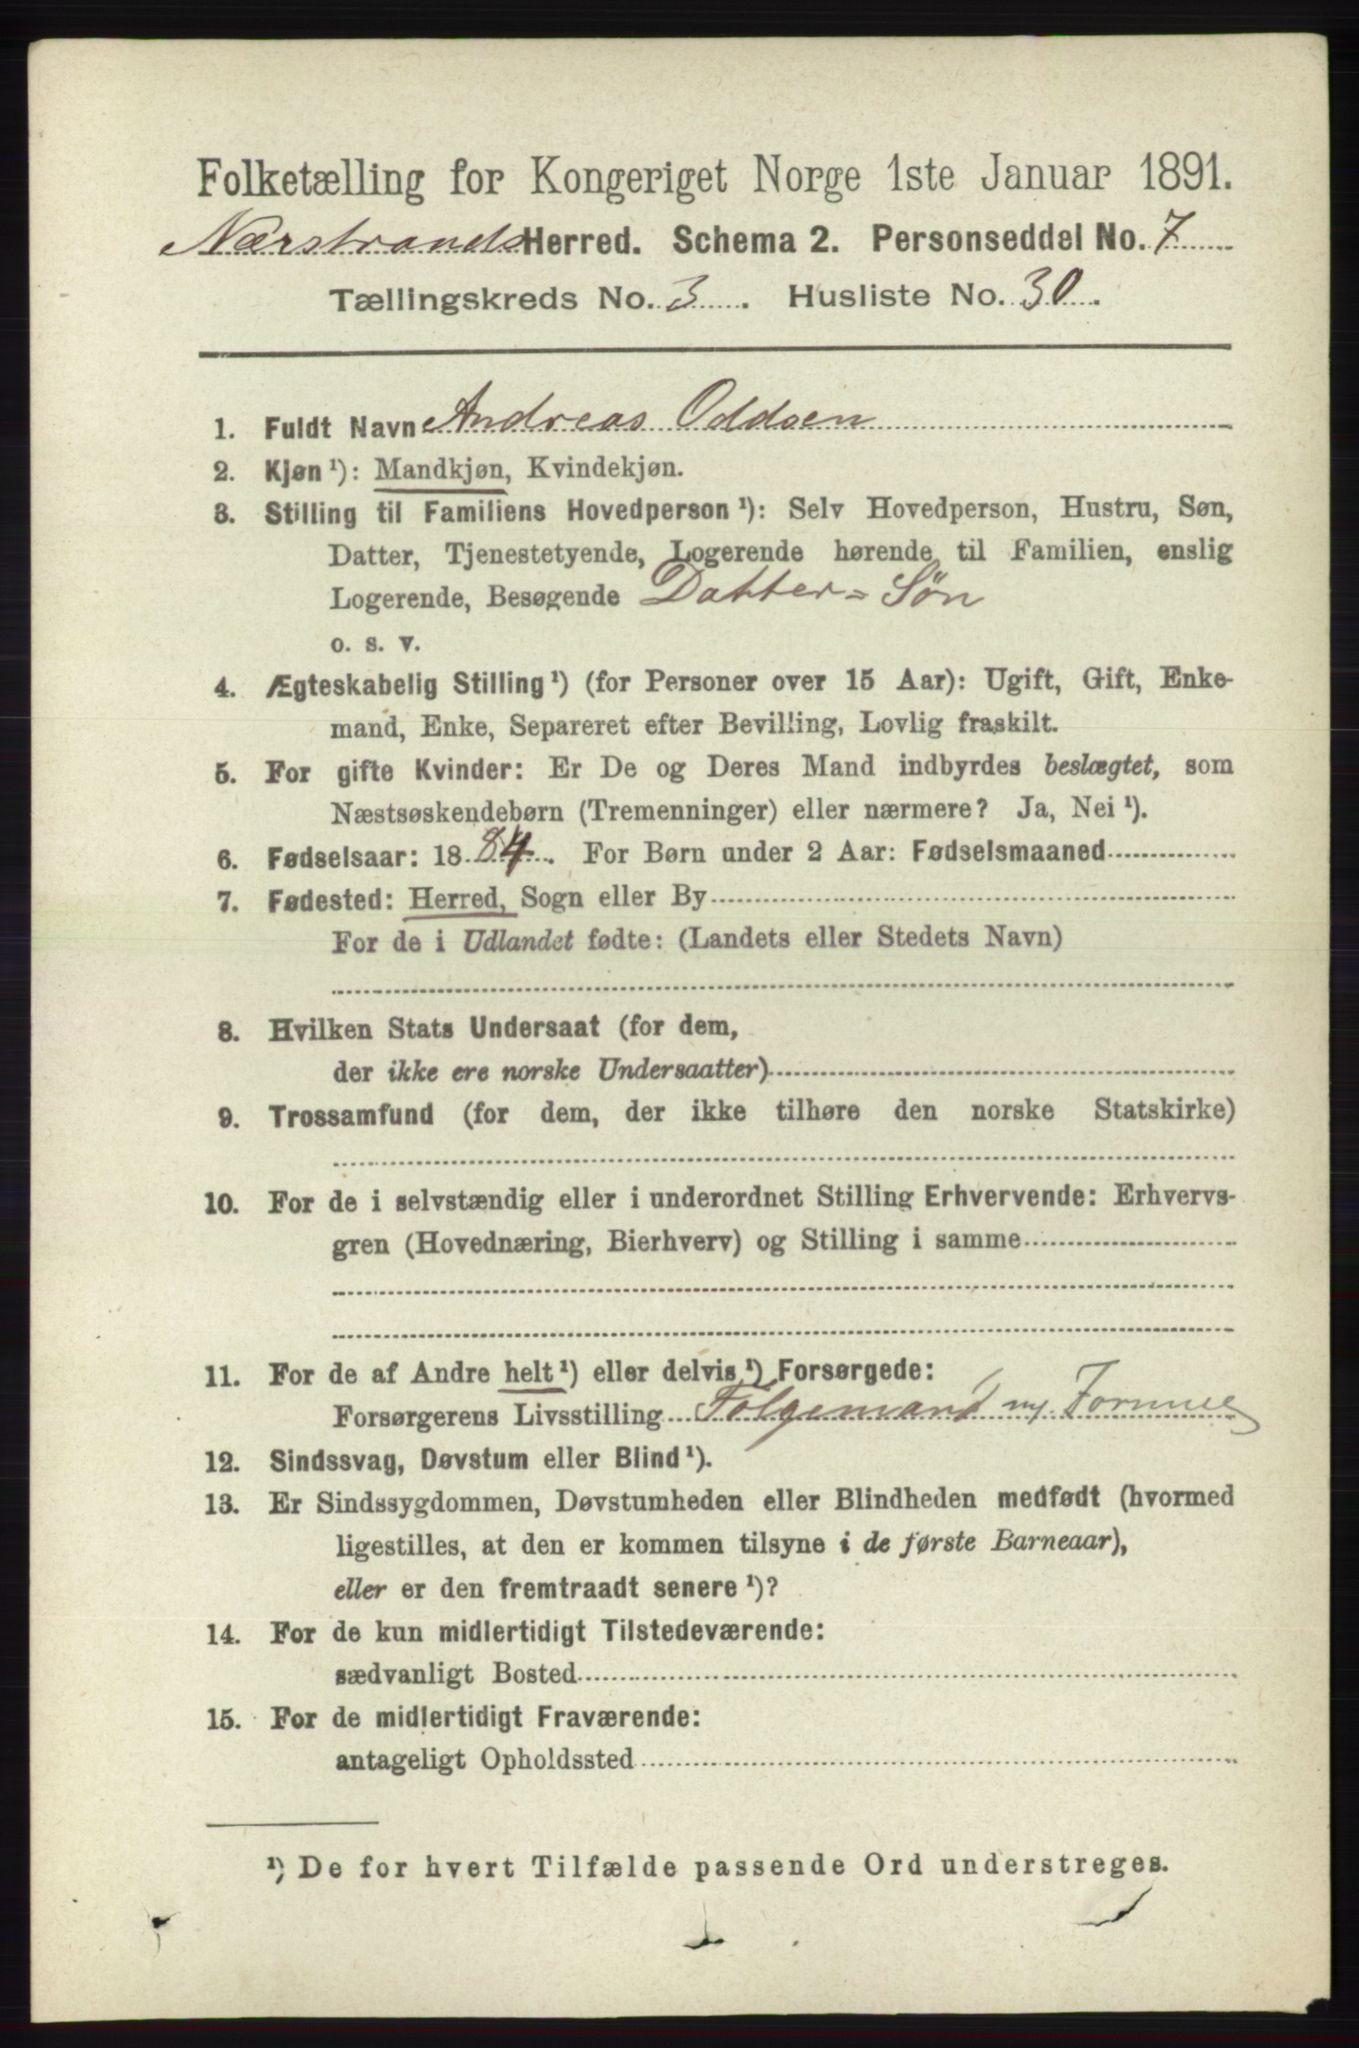 Folketælling for Kongeriget Norge 1ste Januar 1891.
Nærstrands Herred. Schema 2. Personseddel No. 7
Tællingskreds No. 3. Husliste No. 30.
1. Fuldt Navn Andreas Oddsen
2. Kjøn ¹): Mandkjøn, Kvindekjøn.
3. Stilling til Familiens Hovedperson ¹): Selv Hovedperson, Hustru, Søn,
Datter, Tjenestetyende, Logerende hørende til Familien, enslig
Logerende, Besøgende Datter=Søn
o. s. v.
4. Ægteskabelig Stilling ¹) (for Personer over 15 Aar): Ugift, Gift, Enke-
mand, Enke, Separeret efter Bevilling, Lovlig fraskilt.
5. For gifte Kvinder: Er De og Deres Mand indbyrdes beslægtet, som
Næstsøskendebørn (Tremenninger) eller nærmere? Ja, Nei ¹).
6. Fødselsaar: 1884. For Børn under 2 Aar: Fødselsmaaned
7. Fødested: Herred, Sogn eller By
For de i Udlandet fødte: (Landets eller Stedets Navn)
8. Hvilken Stats Undersaat (for dem,
der ikke ere norske Undersaatter)
9. Trossamfund (for dem, der ikke tilhøre den norske Statskirke)
10. For de i selvstændig eller i underordnet Stilling Erhvervende: Erhvervs-
gren (Hovednæring, Bierhverv) og Stilling i samme
11. For de af Andre helt ¹) eller delvis ¹) Forsørgede:
Forsørgerens Livsstilling Folgemand m/ Formue
12. Sindssvag, Døvstum eller Blind ¹).
13. Er Sindssygdommen, Døvstumheden eller Blindheden medfødt (hvormed
ligestilles, at den er kommen tilsyne i de første Barneaar),
eller er den fremtraadt senere ¹)?
14. For de kun midlertidigt Tilstedeværende:
sædvanligt Bosted
15. For de midlertidigt Fraværende:
antageligt Opholdssted
¹) De for hvert Tilfælde passende Ord understreges.